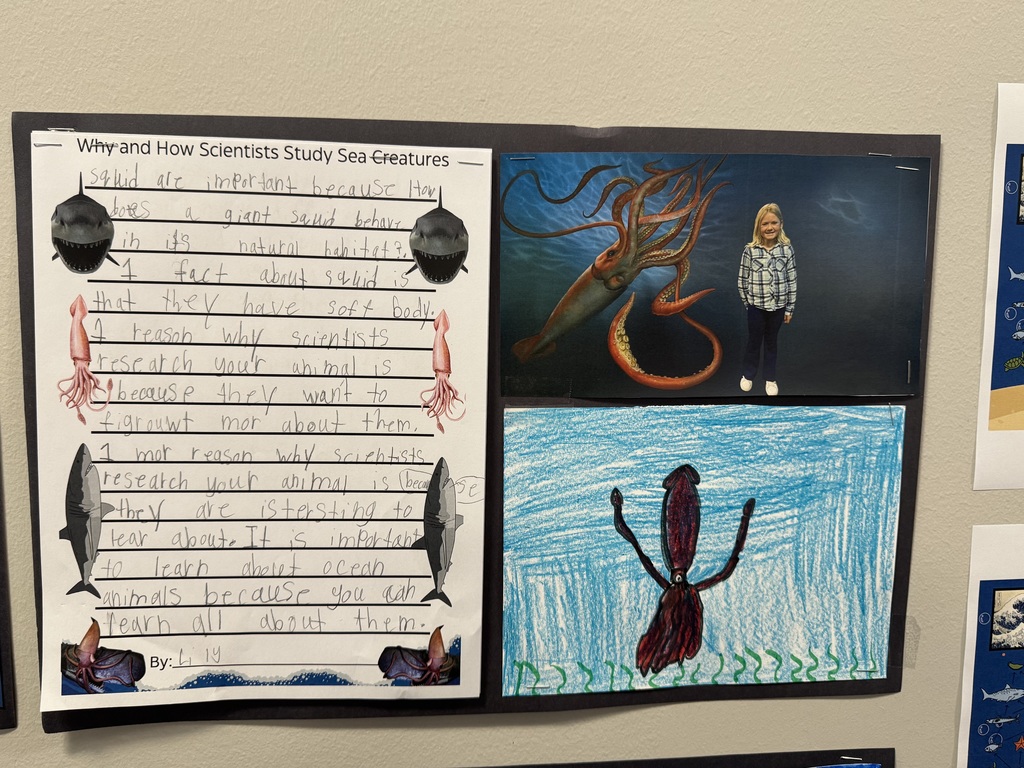 Why and How Scientists Study Sea Creatures
squid are important because How
does a giant squid behave
in its natural habitat?
1 fact about squid is
that they have soft body.
1 reason why scientists
research your animal is
because they want to
figrouwt mor about them.
1 mor reason why scientists
research your animal is because
they are istersting to
lear about. It is important
to learn about ocean
animals because you can
learn all about them.
By: Lily